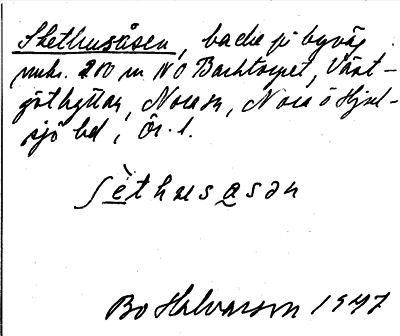 Skethusåsen, backe på byväg
200 m NO Backtorpet, Väst-
göthyttan, Nora sn, Nora o Hjul-
sjö bd, Ör. l.
sèthusasən
Bo Halvarson 1947